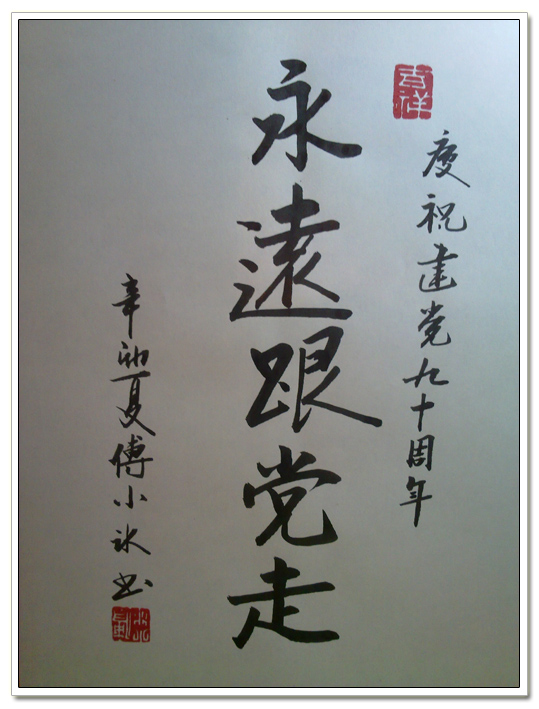 吉祥
慶祝建党九十周年
永遠跟党走
辛卯夏傅小冰书